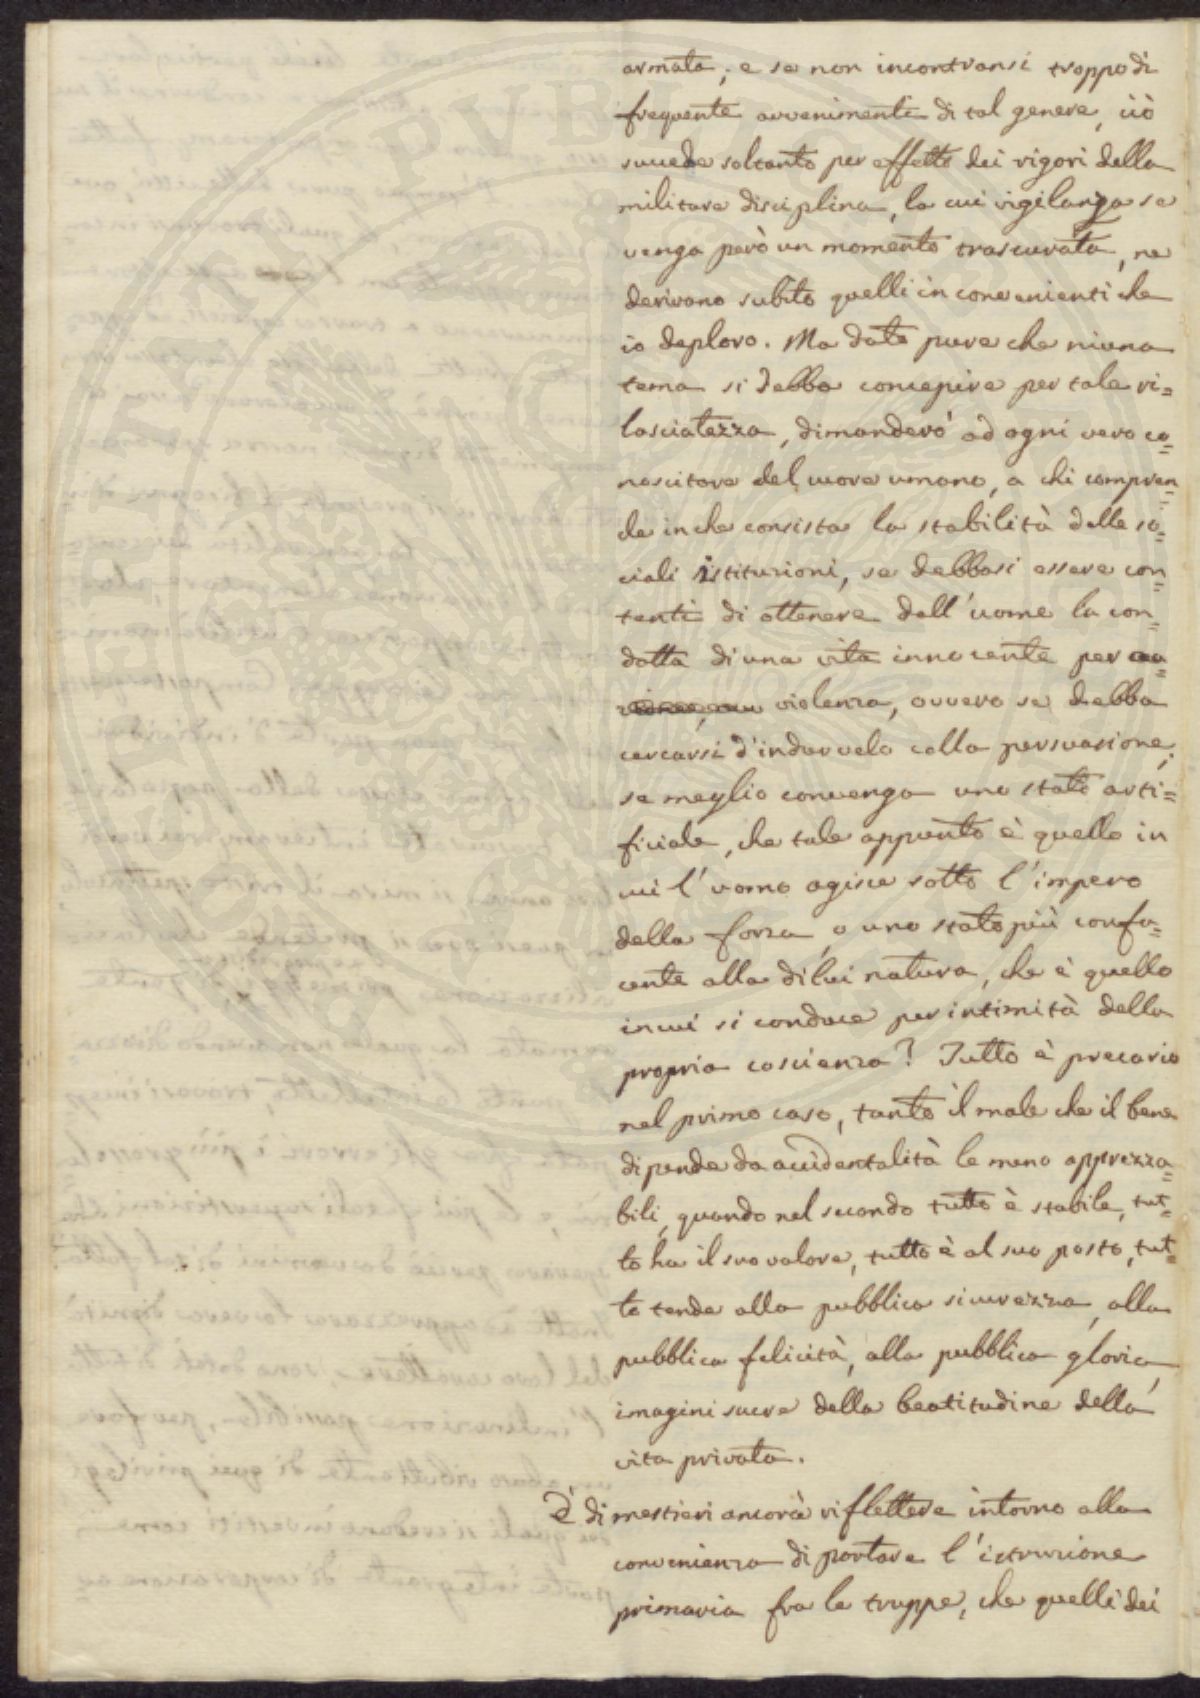 armata; e se non incontransi troppo di
frequente avvenimenti di tal genere, ciò
succede soltanto per effetto dei rigori della
militare disciplina, la cui vigilanza se
venga però un momento trascurata, ne
derivano subito quelli inconvenienti che
io deploro. Ma dato pure che niuna
tema si debba concepire per tale ri=
lasciatezza, dimanderò ad ogni vero co=
noscitore del cuore umano, a chi compren=
de in che consista la stabilità delle so=
ciali istituzioni, se debbasi essere con=
tenti di ottenere dall'uomo la con=
dotta di una vita innocente per
violenza, ovvero se debba
cercarsi d'indurvelo colla persuasione;
se meglio convenga uno stato arti=
ficiale, che tale appunto è quello in
cui l'uomo agisce sotto l'impero
della forza, o uno stato più confa=
cente alla di lui natura, che è quello
in cui si conduce per intimità della
propria coscienza? Tutto è precario
nel primo caso, tanto il male che il bene
dipende da accidentalità le meno apprezza=
bili, quando nel secondo tutto è stabile, tut=
to ha il suo valore, tutto è al suo posto, tut=
to tende alla pubblica sicurezza, alla
pubblica felicità, alla pubblica gloria,
imagini sacre della beatitudine della
vita privata.
È di mestieri ancora riflettere intorno alla
convenienza di portare l'istruzione
primaria fra le truppe, che quelli dei